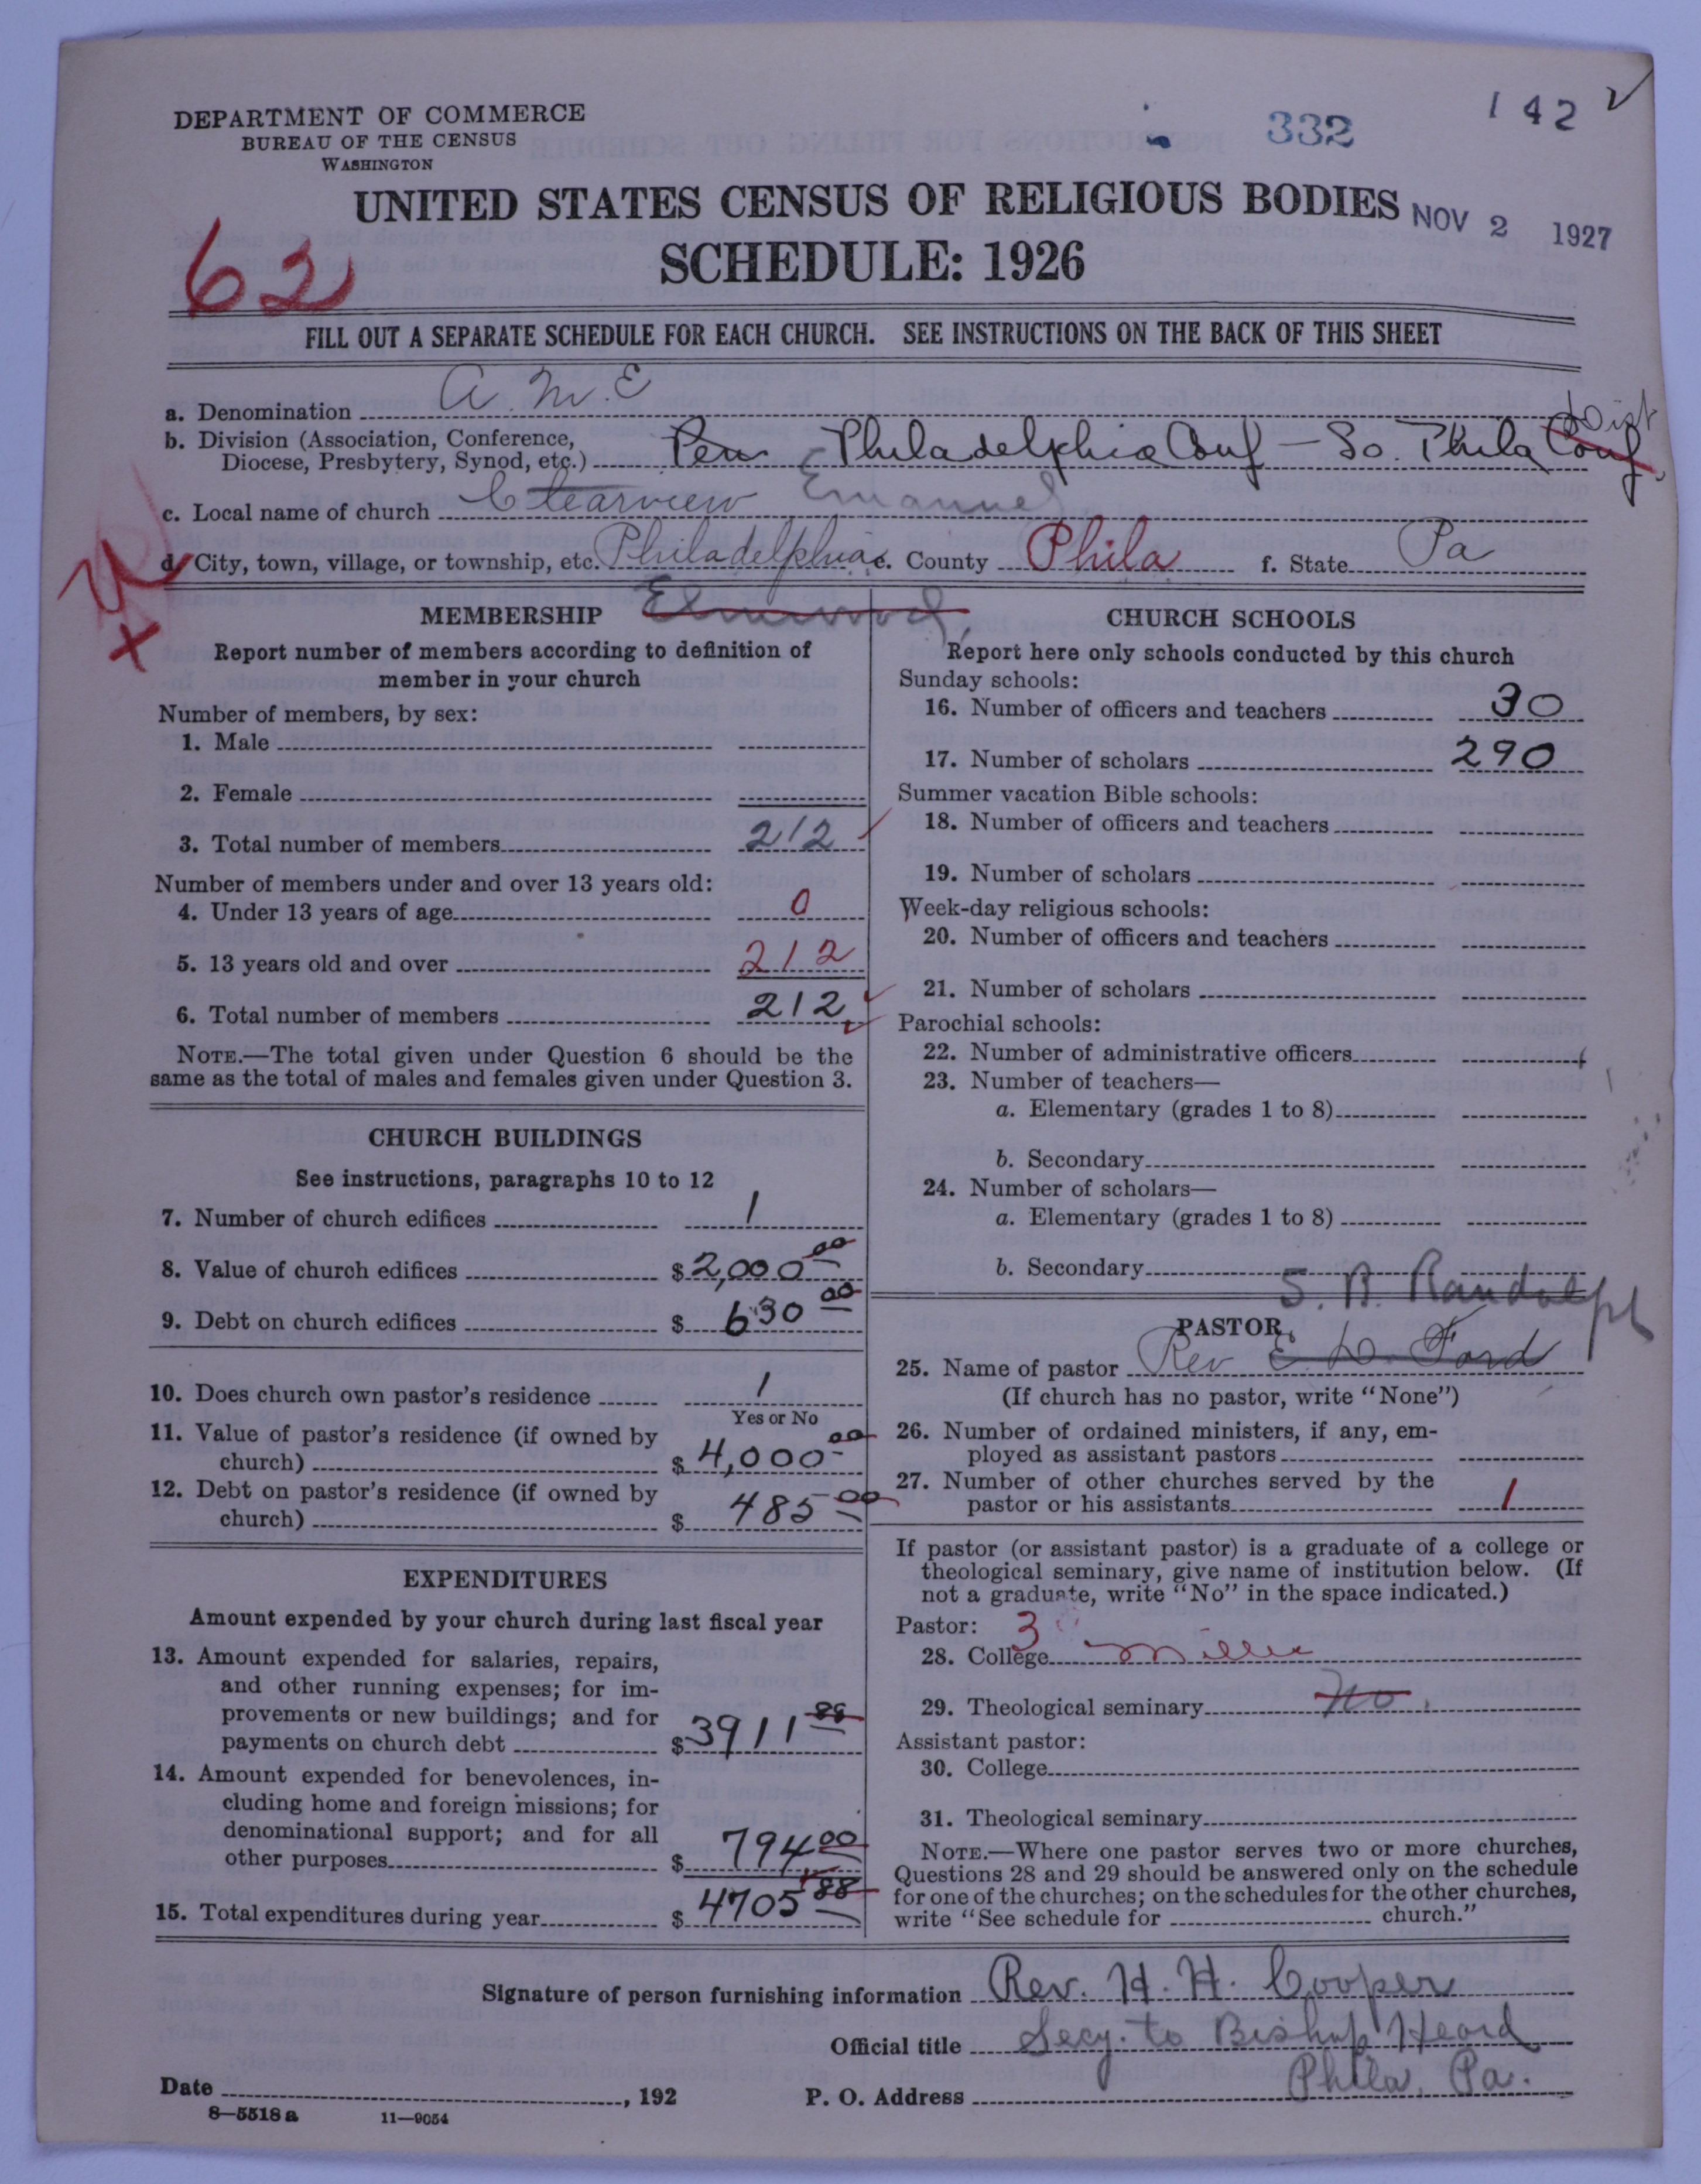 DEPARTMENT OF COMMERCE
BUREAU OF THE CENSUS
WASHINGTON
332
142
UNITED STATES CENSUS OF RELIGIOUS BODIES
NOV 2 1927
SCHEDULE: 1926
62
FILL OUT A SEPARATE SCHEDULE FOR EACH CHURCH. SEE INSTRUCTIONS ON THE BACK OF THIS SHEET
a. Denomination A. M. E
b. Division (Association, Conference,
Diocese, Presbytery, Synod, etc.) Philadelphia Conf - So. Phila Conf Dist
c. Local name of church Clearview Emanuel
d. City, town, village, or township, etc. Philadelphia e. County Phila f. State Pa
Elmwood
MEMBERSHIP
Report number of members according to definition of
member in your church
Number of members, by sex:
1. Male
2. Female
3. Total number of members 212
Number of members under and over 13 years old:
4. Under 13 years of age 0
5. 13 years old and over 212
6. Total number of members 212
NOTE.—The total given under Question 6 should be the
same as the total of males and females given under Question 3.
CHURCH BUILDINGS
See instructions, paragraphs 10 to 12
7. Number of church edifices 1
8. Value of church edifices $2,000 00
9. Debt on church edifices $ 630 00
10. Does church own pastor's residence 1
Yes or No
11. Value of pastor's residence (if owned by
church) $ 4,000 00
12. Debt on pastor's residence (if owned by
church) $ 485 00
EXPENDITURES
Amount expended by your church during last fiscal year
13. Amount expended for salaries, repairs,
and other running expenses; for im-
provements or new buildings; and for
payments on church debt $ 3911 88
14. Amount expended for benevolences, in-
cluding home and foreign missions; for
denominational support; and for all
other purposes $ 794 00
15. Total expenditures during year $ 4705 88
CHURCH SCHOOLS
Report here only schools conducted by this church
Sunday schools:
16. Number of officers and teachers 30
17. Number of scholars 290
Summer vacation Bible schools:
18. Number of officers and teachers
19. Number of scholars
Week-day religious schools:
20. Number of officers and teachers
21. Number of scholars
Parochial schools:
22. Number of administrative officers
23. Number of teachers—
a. Elementary (grades 1 to 8)
b. Secondary
24. Number of scholars—
a. Elementary (grades 1 to 8)
b. Secondary
S. A. Randolph
PASTOR
25. Name of pastor Rev E. D. Ford
(If church has no pastor, write "None")
26. Number of ordained ministers, if any, em-
ployed as assistant pastors
27. Number of other churches served by the
pastor or his assistants 1
If pastor (or assistant pastor) is a graduate of a college or
theological seminary, give name of institution below. (If
not a graduate, write "No" in the space indicated.)
Pastor: 3
28. College
29. Theological seminary No.
Assistant pastor:
30. College
31. Theological seminary
NOTE.—Where one pastor serves two or more churches,
Questions 28 and 29 should be answered only on the schedule
for one of the churches; on the schedules for the other churches,
write "See schedule for church."
Signature of person furnishing information Rev. H. H. Cooper
Official title Secy. to Bishop Heard
Date , 192 P. O. Address Phila, Pa.
8—5518 a 11—9054